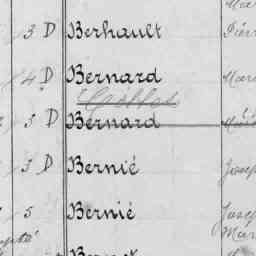 3 D Berhault Pier
4 D Bernard Mar
5 D Bernard
3 D Bernié Josep
5 Bernié Josep
Mar